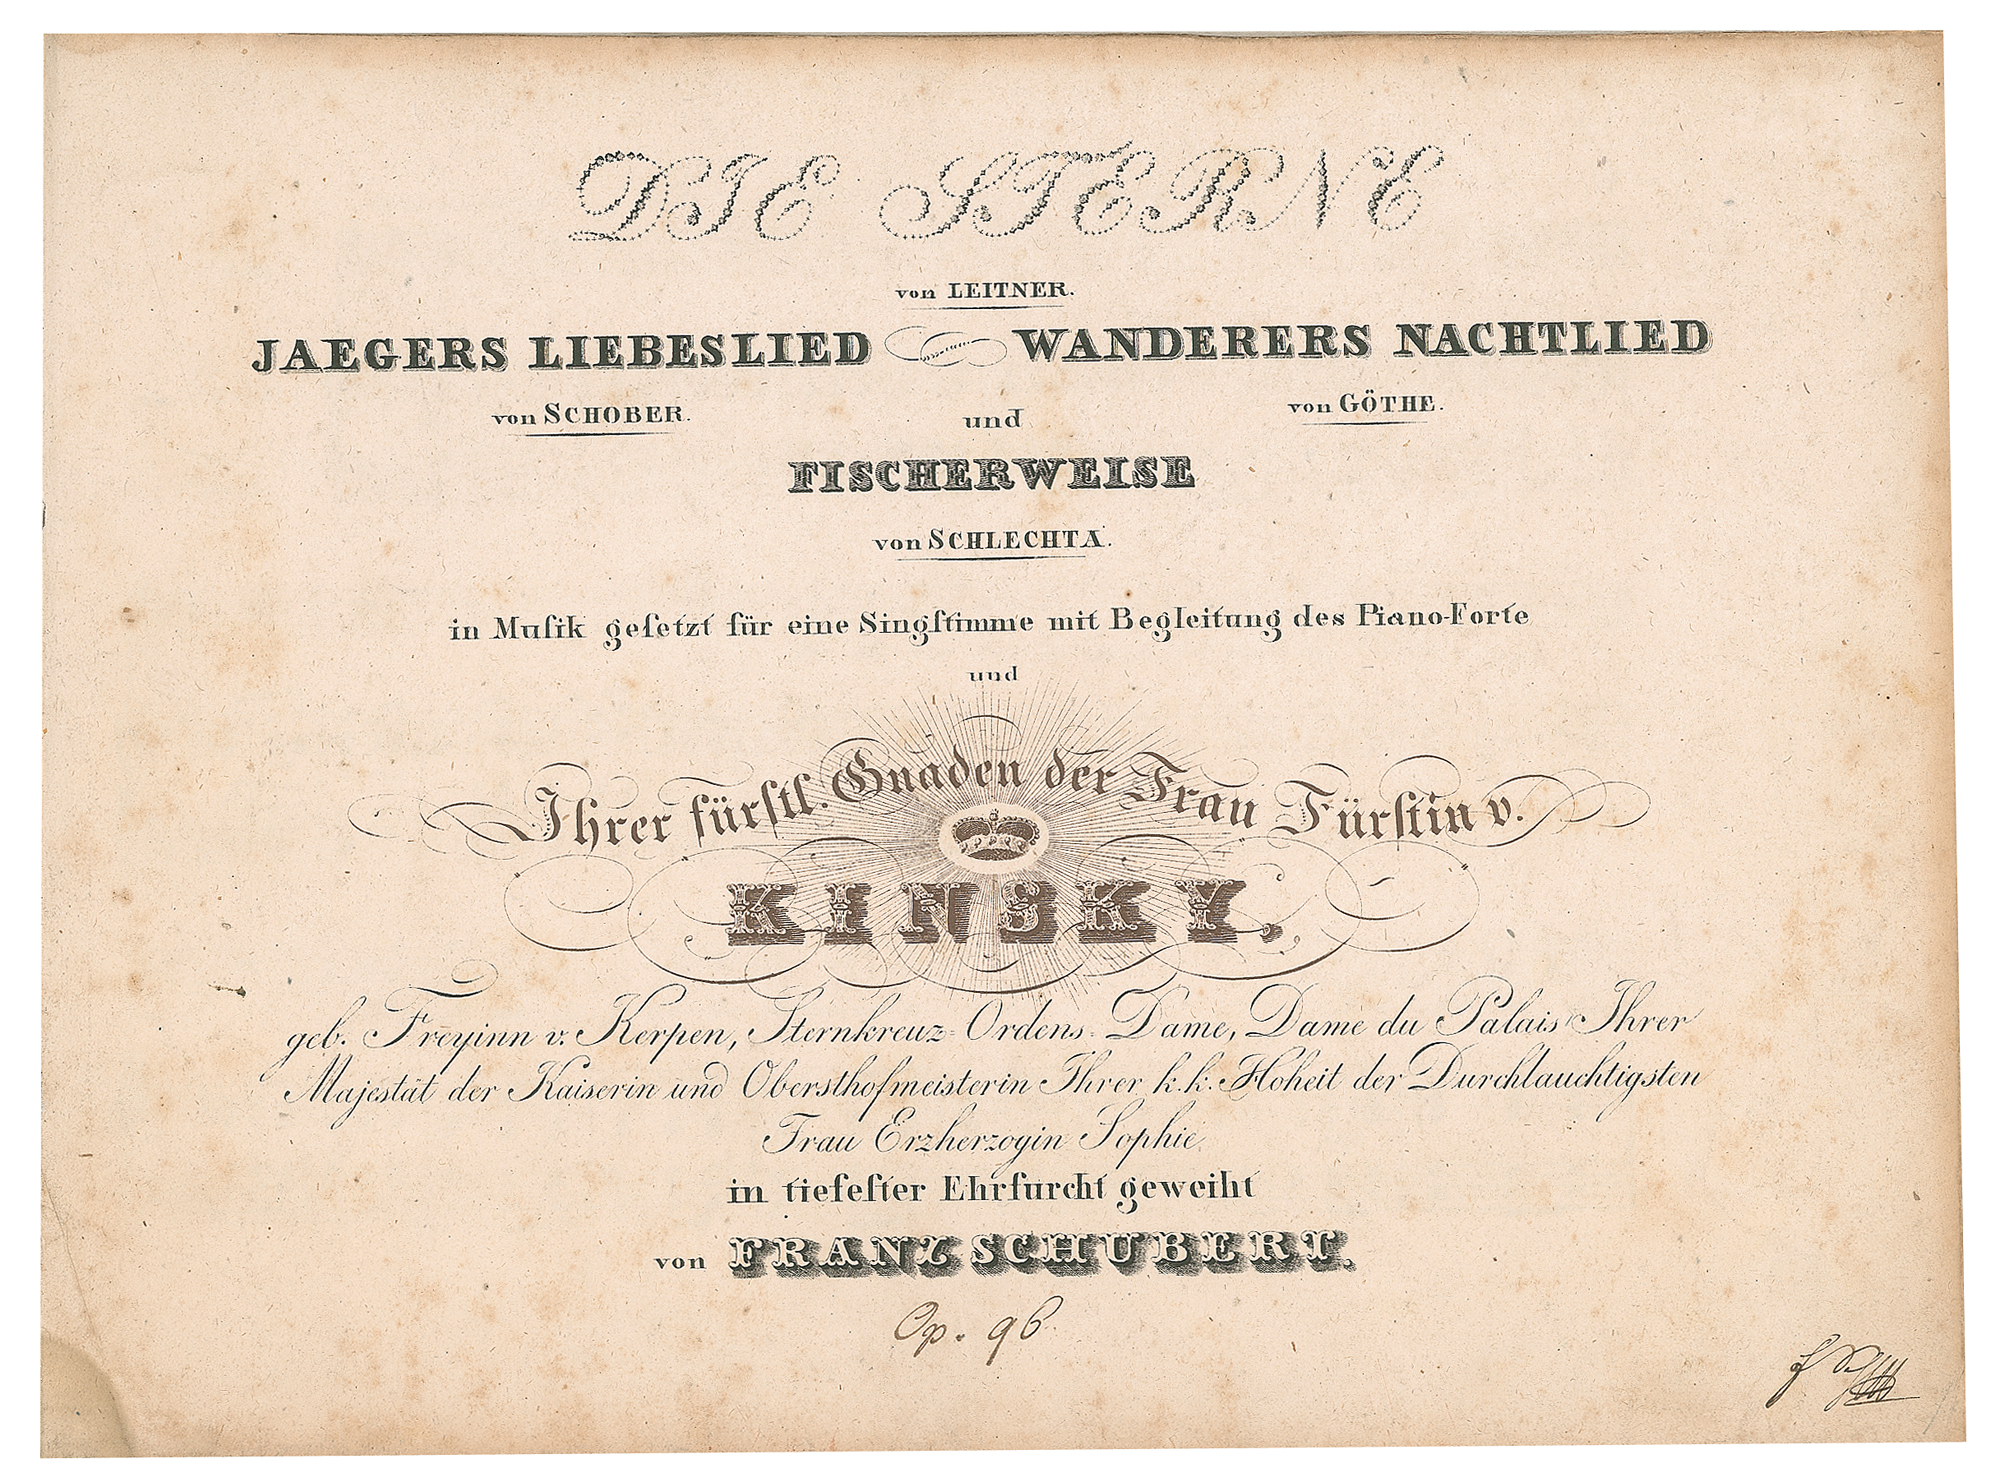 DIE STERNE
von LEITNER.
JAEGERS LIEBESLIED WANDERERS NACHTLIED
von SCHOBER. und von GÖTHE.
FISCHERWEISE
von SCHLECHTA.
in Muſik geſetzt für eine Singſtimme mit Begleitung des Piano-Forte
und
Ihrer fürſtl. Gnaden der Frau Fürſtin v.
KINSKY.
geb. Freyinn v. Kerpen, Sternkreuz-Ordens-Dame, Dame du Palais Ihrer
Majestät der Kaiserin und Obersthofmeisterin Ihrer k.k. Hoheit der Durchlauchtigsten
Frau Erzherzogin Sophie.
in tiefeſter Ehrfurcht geweiht
von FRANZ SCHUBERT.
Op. 96